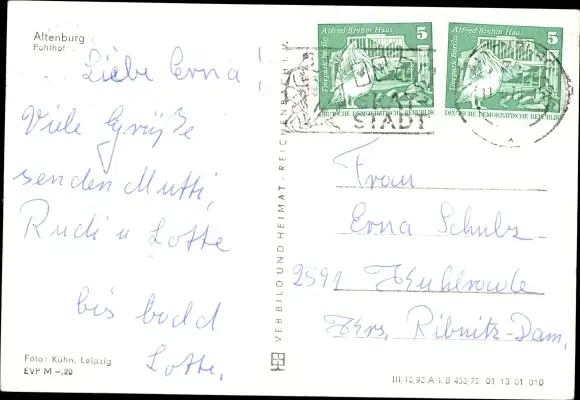 Altenburg
Pohlhof
Liebe Erna!
Viele Grüße
senden Mutti,
Rudi u Lotte
bis bald
Lotte.
Foto: Kühn, Leipzig
EVP M –,20
VEB BILD UND HEIMAT · REICHENBACH I. V.
Alfred Brehm Haus 5
Tierpark Berlin
DEUTSCHE DEMOKRATISCHE REPUBLIK
Alfred Brehm Haus 5
Tierpark Berlin
DEUTSCHE DEMOKRATISCHE REPUBLIK
STADT
Frau
Erna Schulz
2591
Krs. Ribnitz-Dam.
III/10/93 A 1, B 458/75 01 13 01 010